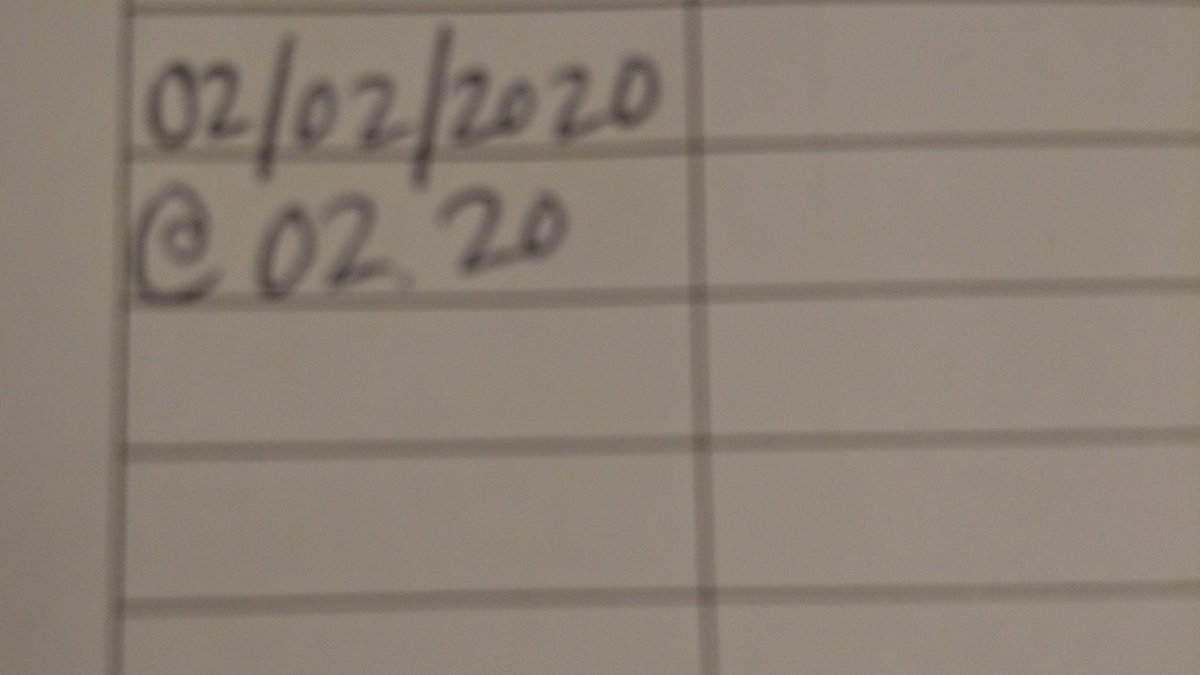 02/02/2020
@ 02.20